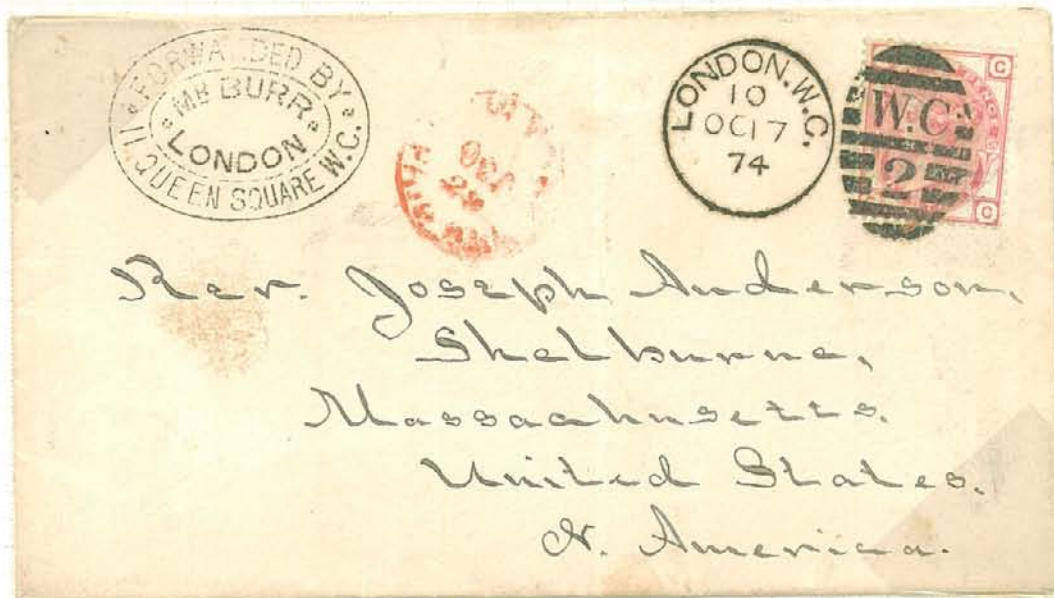 FORWARDED BY
MR BURR
LONDON
11 QUEEN SQUARE W.C.
LONDON.W.C.
10
OC17
74
W.C.
2
G
G
Rev. Joseph Anderson,
Shelburne,
Massachusetts.
United States.
N. America.